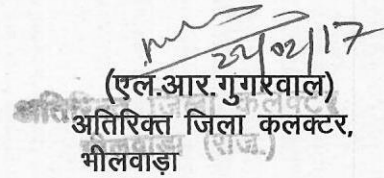 22/02/17
(एल.आर.गुगरवाल)
अतिरिक्त जिला कलक्टर
अतिरिक्त जिला कलक्टर,
भीलवाड़ा (राज.)
भीलवाड़ा